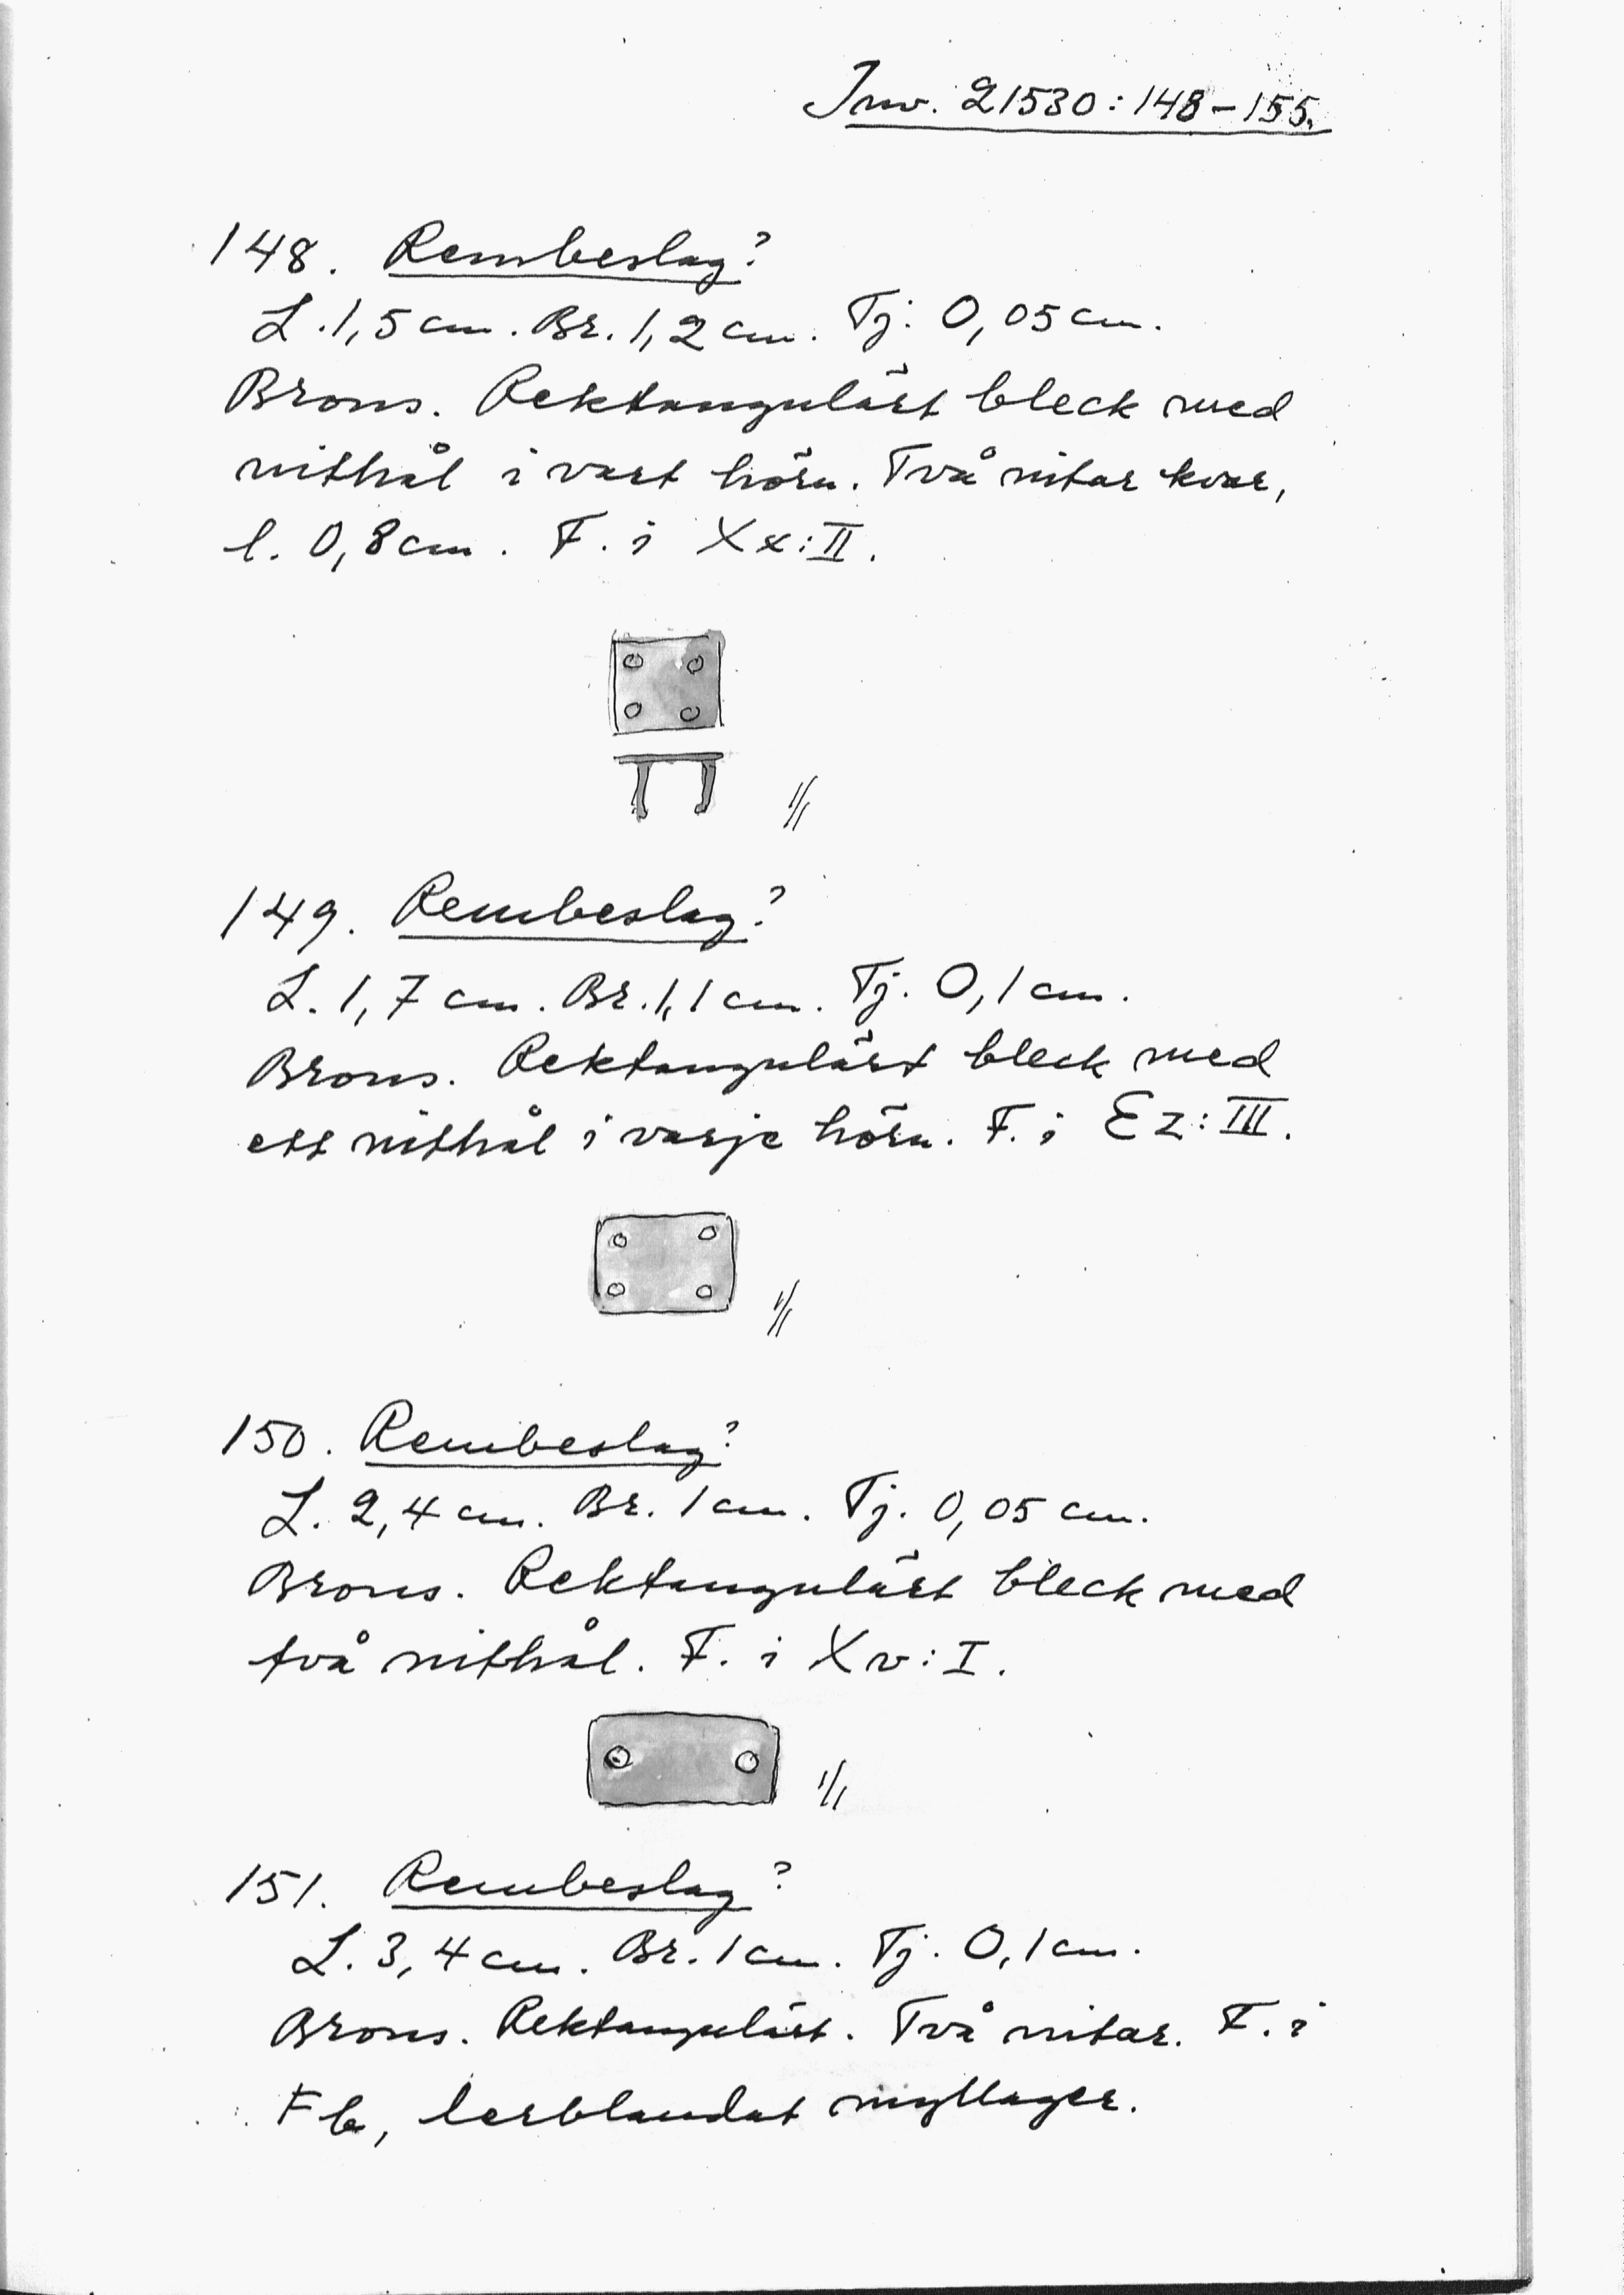 Inv. 21530:148-155.
148. Rembeslag?
L. 1,5 cm. Br. 1,2 cm. Tj: 0,05 cm.
Brons. Rektangulärt bleck med
nithål i vart hörn. Två nitar kvar,
l. 0,8 cm. F. i Xx:II.
1/1
149. Rembeslag?
L. 1,7 cm. Br. 1,1 cm. Tj. 0,1 cm.
Brons. Rektangulärt bleck med
ett nithål i varje hörn. F. i Ez:III.
1/1
150. Rembeslag?
L. 2,4 cm. Br. 1 cm. Tj. 0,05 cm.
Brons. Rektangulärt bleck med
två nithål. F. i Xv:I.
1/1
151. Rembeslag?
L. 3,4 cm. Br. 1 cm. Tj. 0,1 cm.
Brons. Rektangulärt. Två nitar. F. i
Fb, lerblandat myllager.